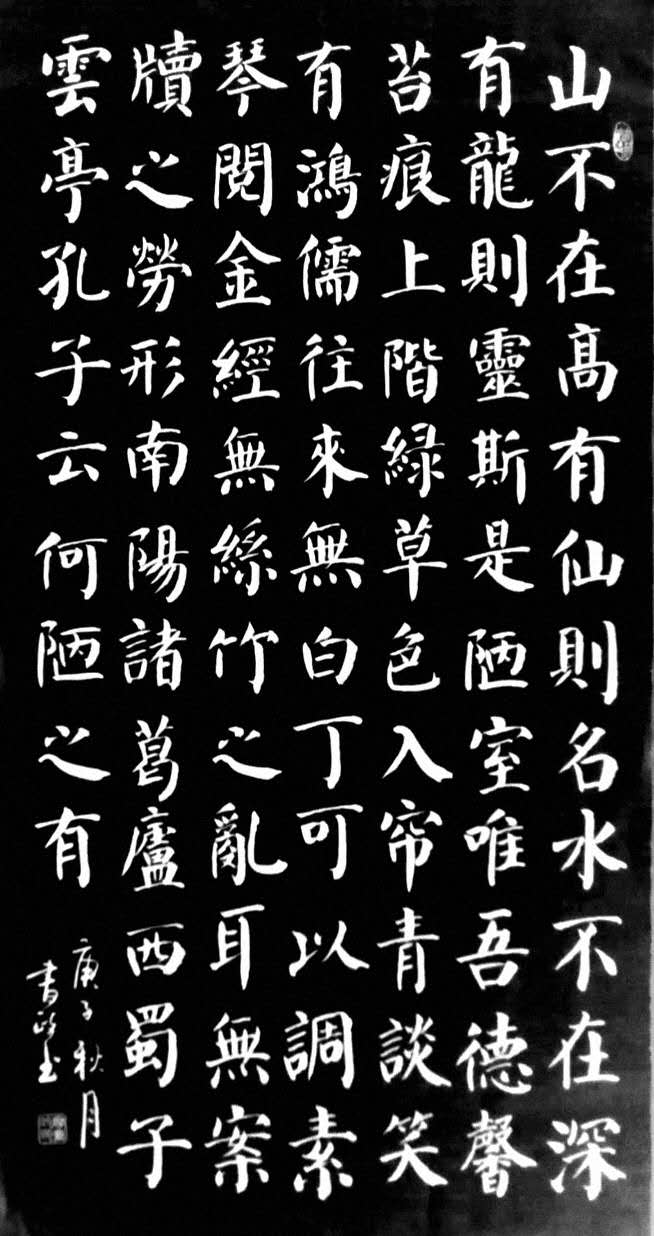 山不在高有仙則名水不在深
有龍則靈斯是陋室唯吾德馨
苔痕上階緑草色入帘青談笑
有鴻儒往來無白丁可以調素
琴閱金經無絲竹之亂耳無案
牘之勞形南陽諸葛廬西蜀子
雲亭孔子云何陋之有
庚子秋月